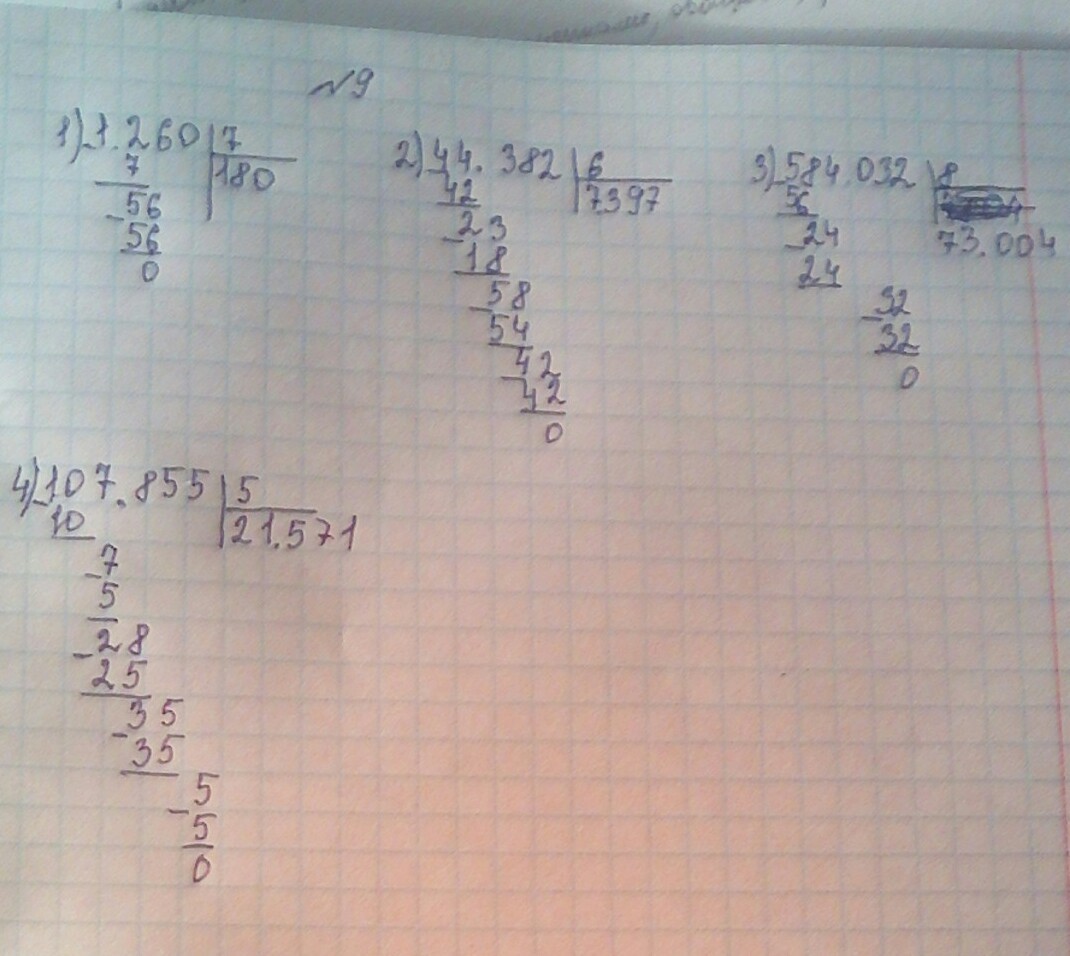 №9
1) 1.260 | 7
7 | 180
56
56
0
2) 44.382 | 6
42 | 7397
23
18
58
54
42
42
0
3) 584.032 | 8
56
24 73.004
24
32
32
0
4) 107.855 | 5
10 | 21.571
7
5
28
25
35
35
5
5
0